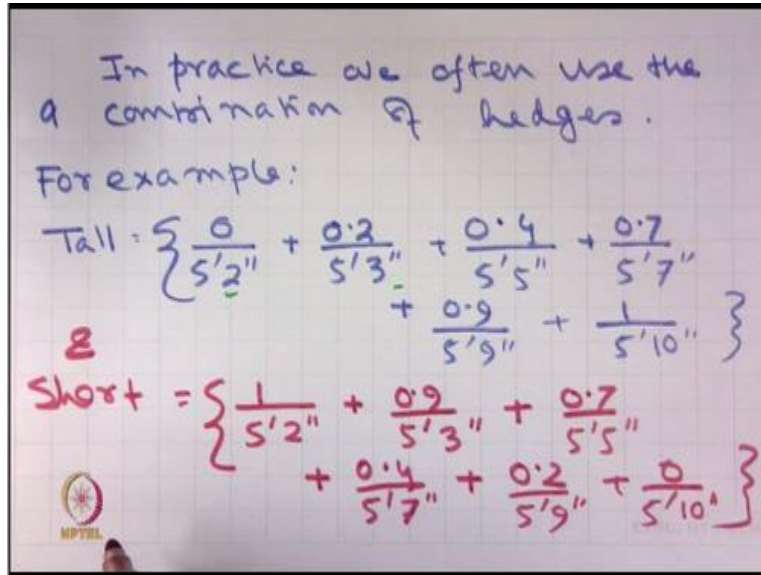 In practice we often use the
a combination of hedges.
For example:
Tall = { 0/5'2" + 0.2/5'3" + 0.4/5'5" + 0.7/5'7"
+ 0.9/5'9" + 1/5'10" }
&
Short = { 1/5'2" + 0.9/5'3" + 0.7/5'5"
+ 0.4/5'7" + 0.2/5'9" + 0/5'10" }
NPTEL